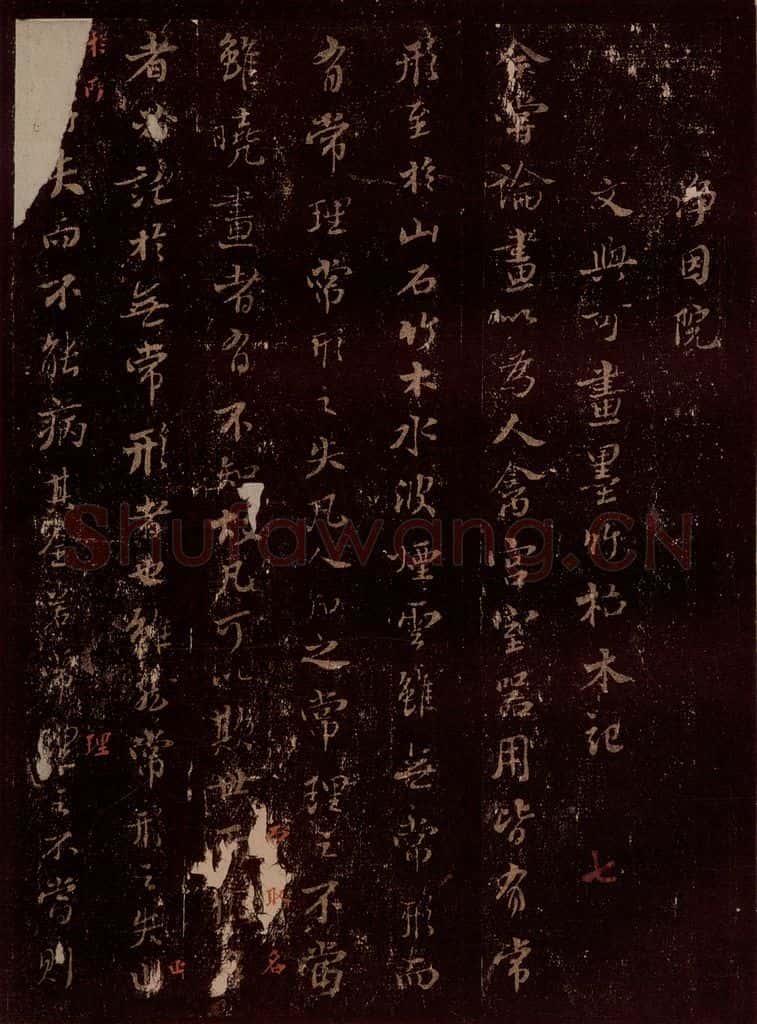 淨因院
文與可畫墨竹枯木記
七
余嘗論畫以為人禽宮室器用皆有常
形至於山石竹木水波煙雲雖無常形而
有常理常形之失凡人知之常理之不當
雖曉畫者有不知故凡可以欺世而
而取名
者必託於無常形者也雖然常形之失止
止
於所
失而不能病其全若常理之不當則
理
Shufawang.CN